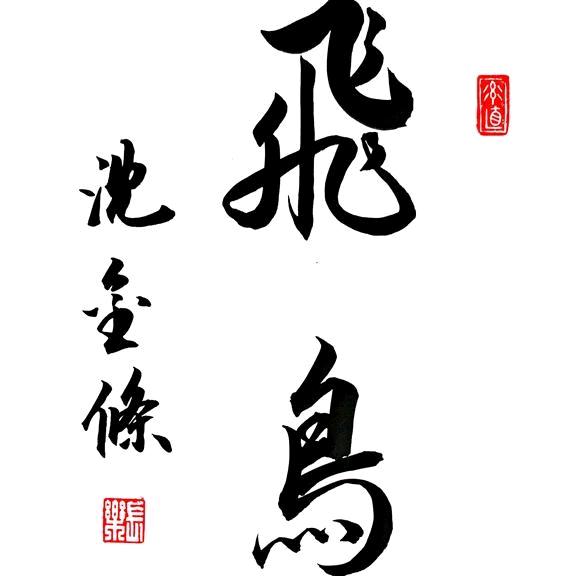 飛鳥
沈金條